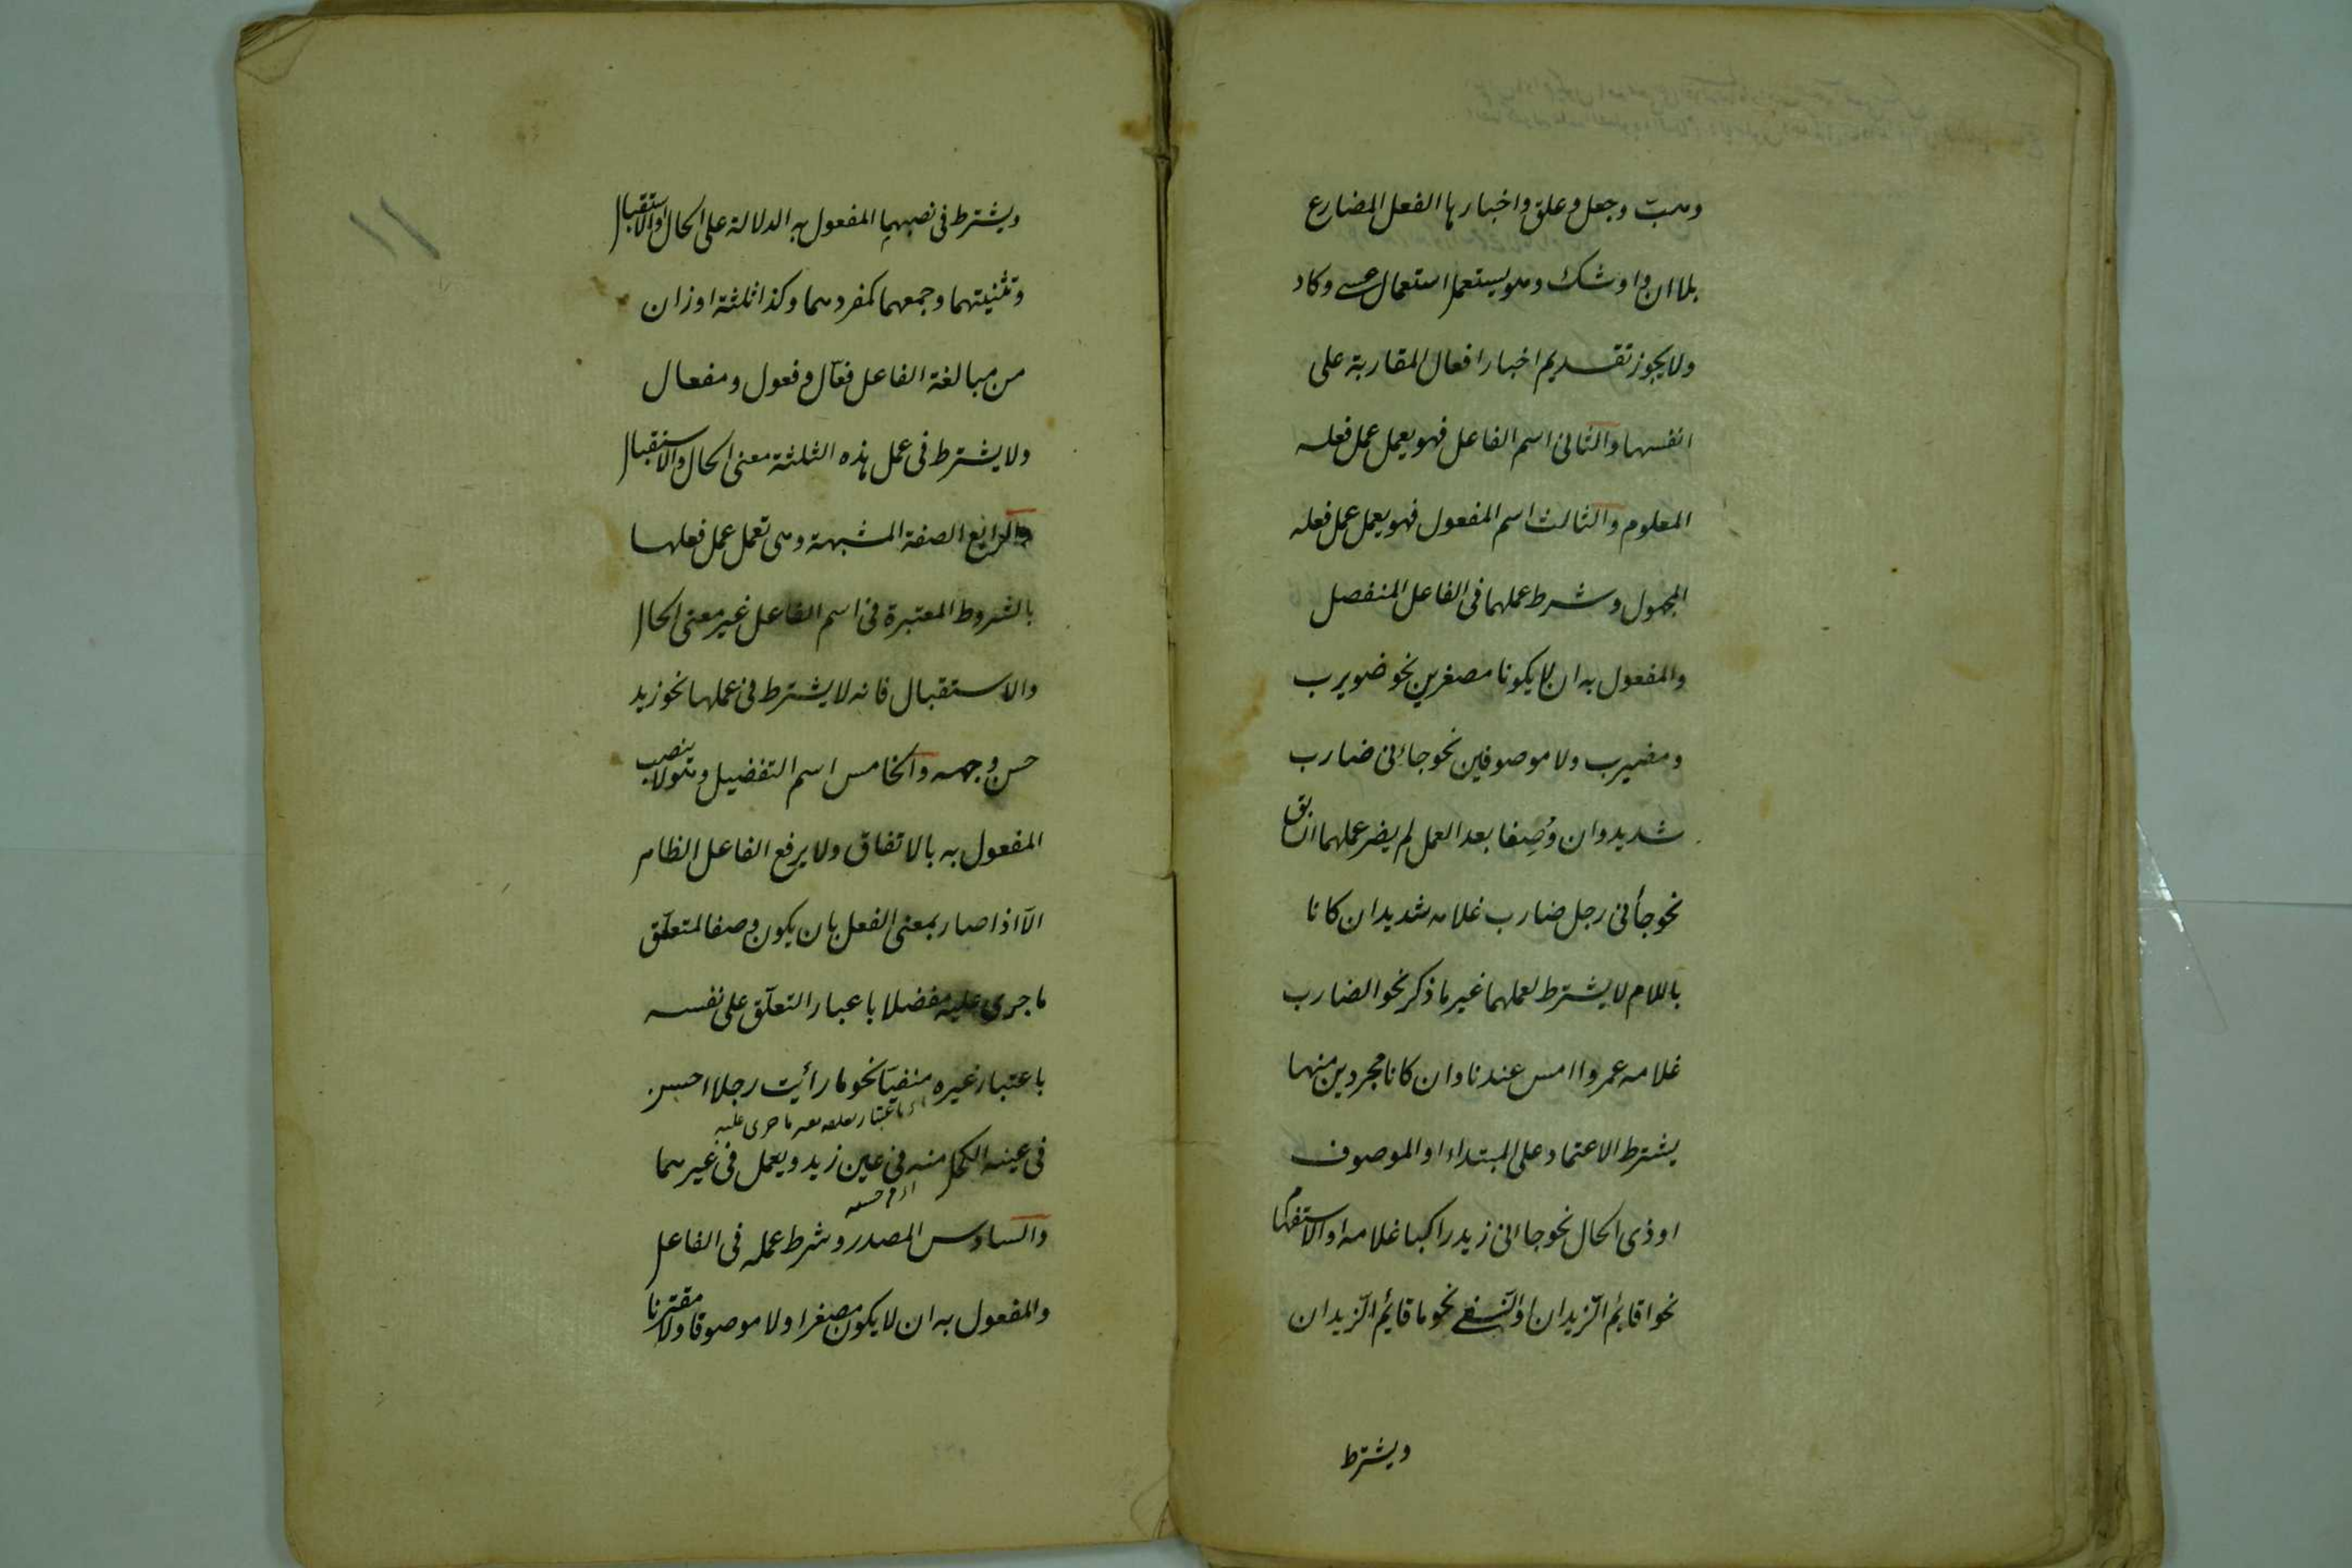 وهبت وجعل وعلق واخبارها الفعل المضارع
بلا ان واوشك وهو يستعمل استعمال عسى وكاد
ولا يجوز تقديم اخبار افعال المقاربة على
انفسها والثانى اسم الفاعل فهو يعمل عمل فعله
المعلوم والثالث اسم المفعول فهو يعمل عمل فعله
المجهول وشرط عملهما فى الفاعل المنفصل
والمفعول به ان لا يكونا مصغرين نحو ضويرب
ومضيرب ولا موصوفين نحو جائنى ضارب
شديد وان وُصِفا بعد العمل لم يضر عملهما السابق
نحو جأنى رجل ضارب غلامه شديد ان كانا
باللام لا يشترط لعملهما غير ما ذكر نحو الضارب
غلامه عمروا امس عندنا وان كانا مجردين منهما
يشترط الاعتماد على المبتداء او الموصوف
او ذى الحال نحو جاانى زيد راكبا غلامه او الاستفهام
نحو اقايم الزيدان او النفى نحو ما قايم الزيدان
ويشترط
ويشترط فى نصبهما المفعول به الدلالة على الحال والاستقبال
وتثنيتهما وجمعهما كمفردهما وكذا ثلثة اوزان
من مبالغة الفاعل فعّال وفعول ومفعال
ولا يشترط فى عمل هذه الثلثة معنى الحال والاستقبال
والرابع الصفة المشبهة وهى تعمل عمل فعلها
بالشروط المعتبرة فى اسم الفاعل غير معنى الحال
والاستقبال فانه لا يشترط فى عملها نحو زيد
حسن وجهه والخامس اسم التفضيل وهو لا ينصب
المفعول به بالاتفاق ولا يرفع الفاعل الظاهر
الّا اذا صار بمعنى الفعل بان يكون وصفا لمتعلّق
ما جرى عليه مفضلا باعبار التعلّق على نفسه
باعتبار غيره منفيّا نحو ما رأيت رجلا احسن
فى عينه الكحل منه فى عين زيد ويعمل فى غيرهما
والسادس المصدر وشرط عمله فى الفاعل
والمفعول به ان لا يكون مصغرا ولا موصوفا ولا مقترنا